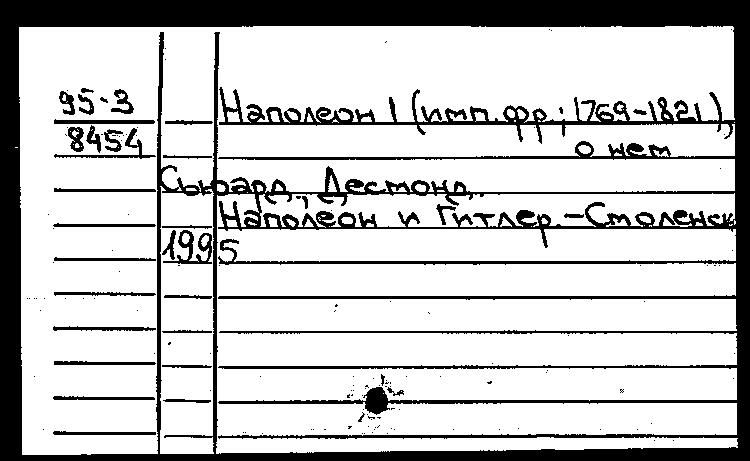 95-3 Наполеон I (имп. фр.; 1769-1821),
8454 о нем
Сьюард, Десмонд.
Наполеон и Гитлер.-Смоленск
1995